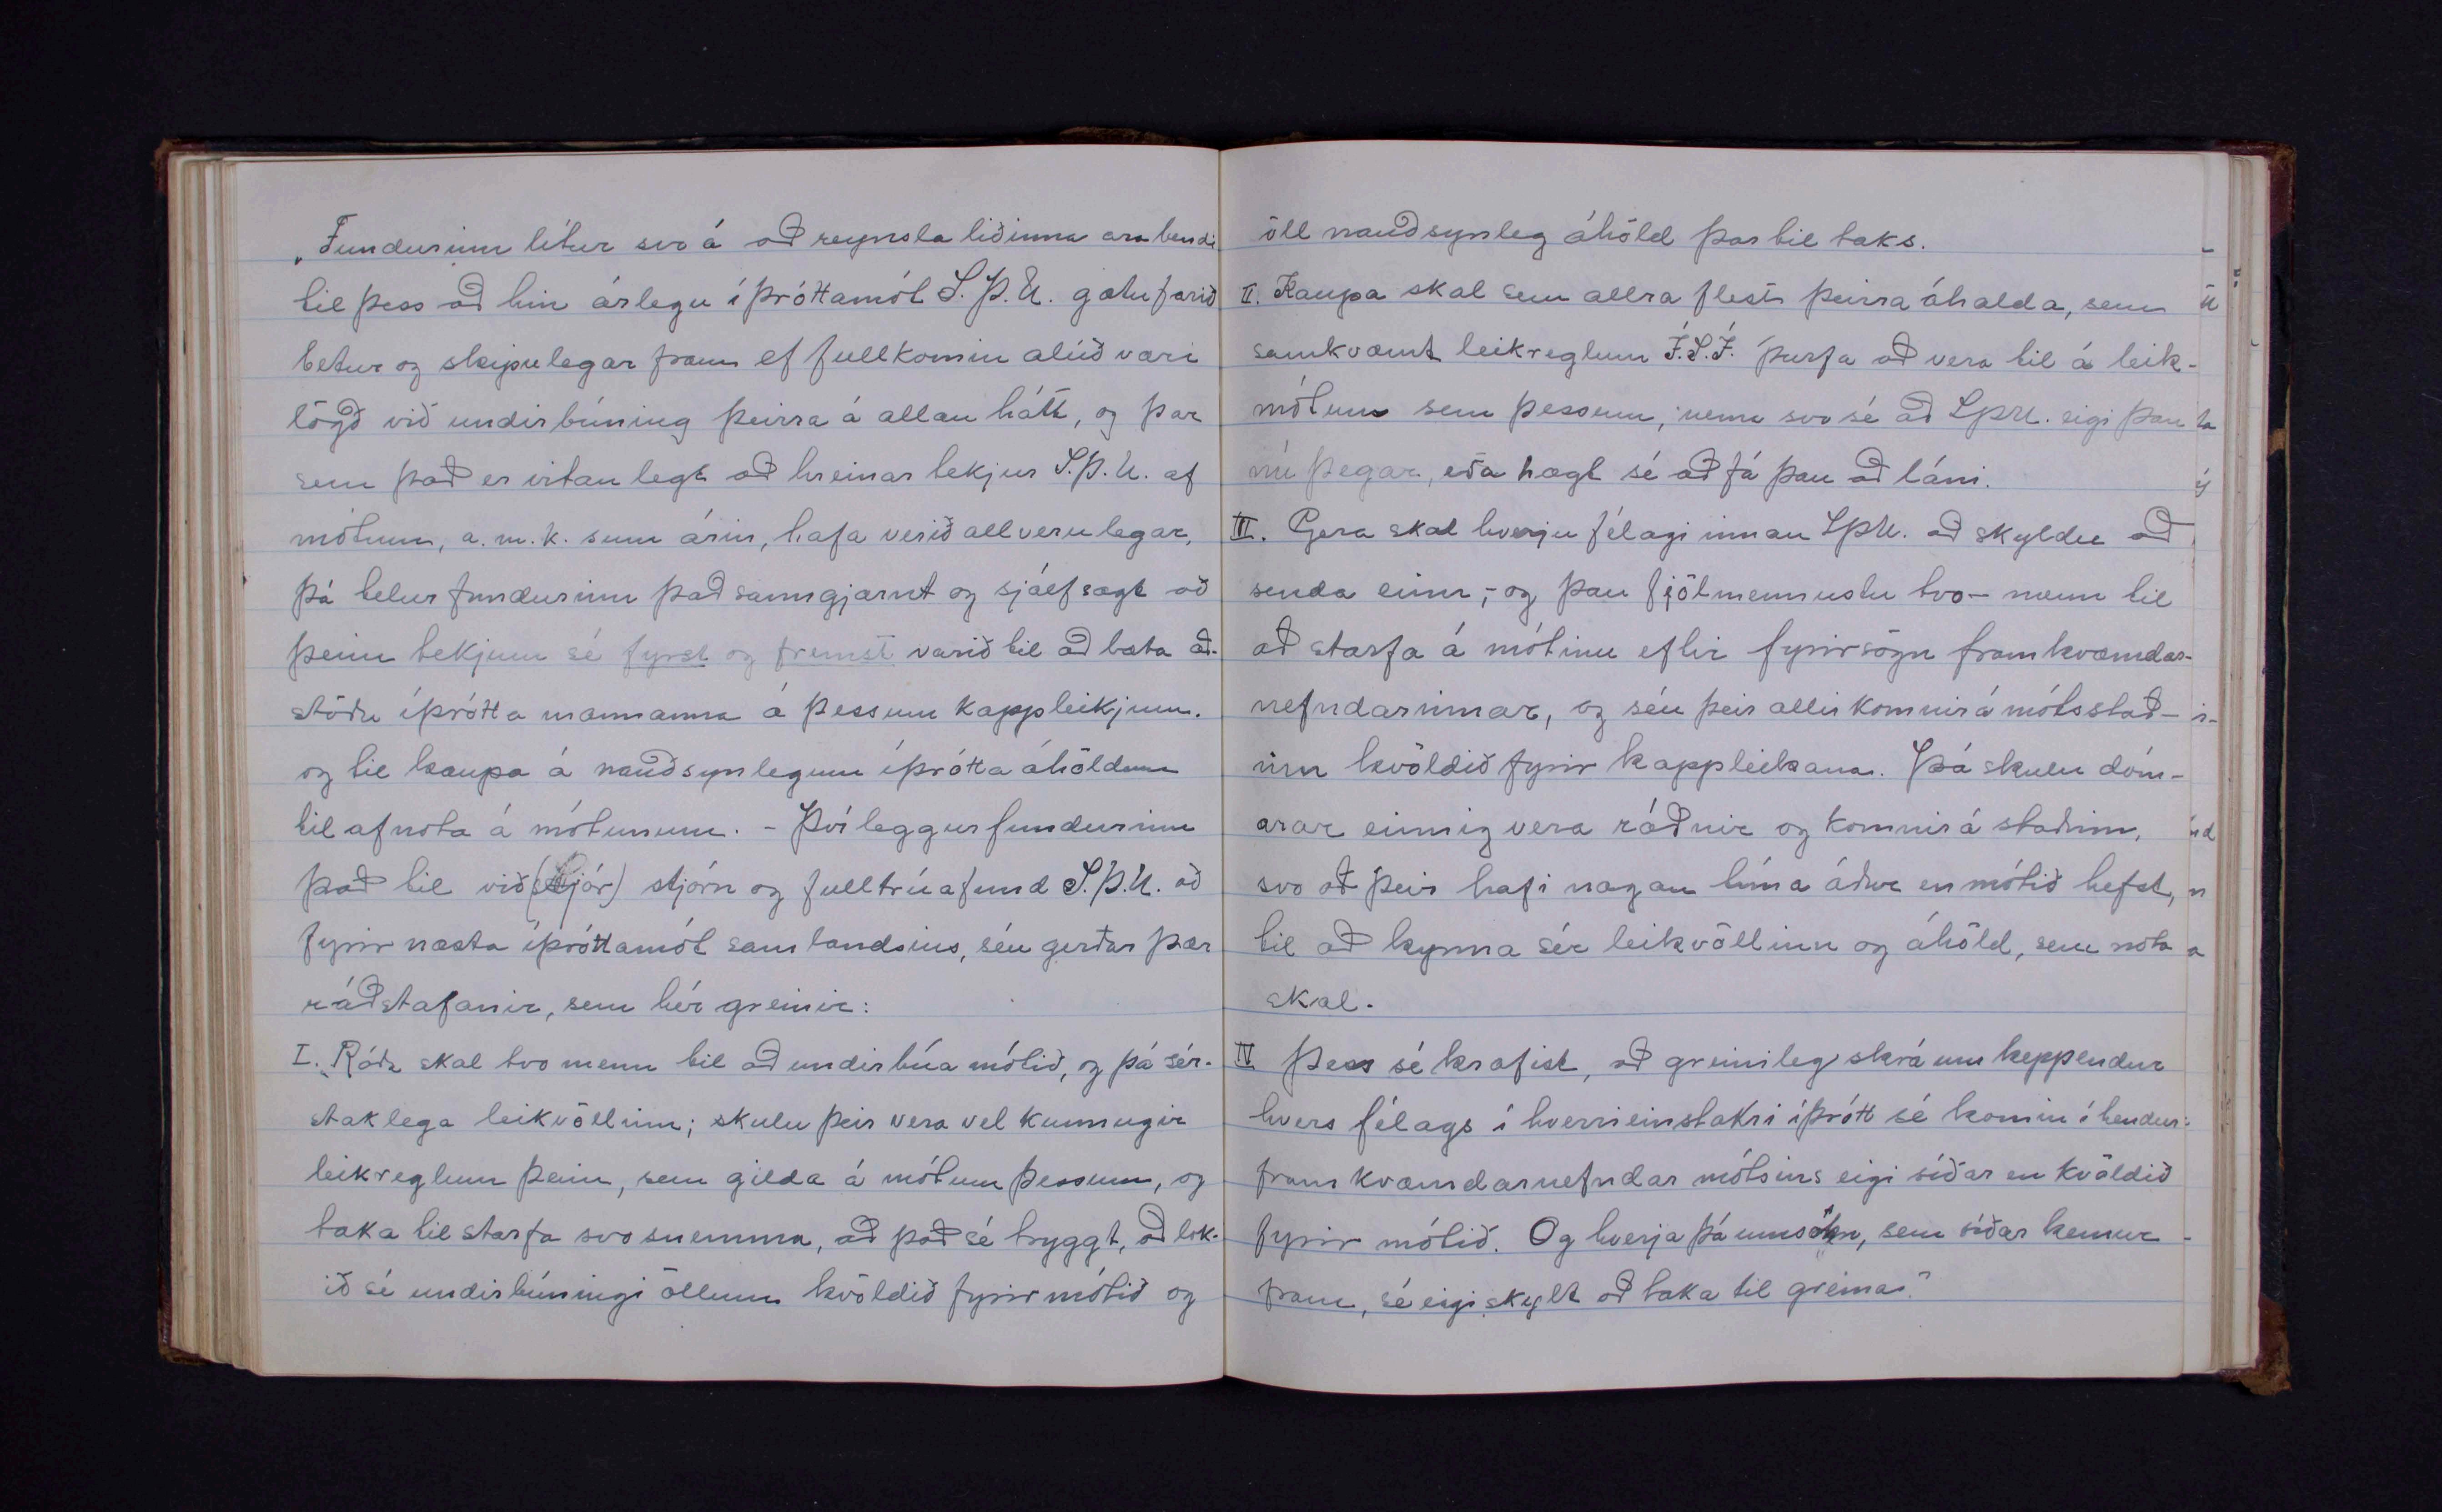 „Fundurinn lítur svo á að reynsla liðinna ara bendi
til þess að hin árlegu íþróttamót S.Þ.U. gætu farið
betur og skipulegar fram ef fullkomin alúð væri
lögð við undirbúning þeirra á allan hátt, og þar
sem það er vitanlegt að hreinar tekjur S.Þ.U. af
mótum, a.m.k. sum árin, hafa verið allverulegar,
þá telur fundurinn það sanngjarnt og sjálfsagt að
þeim tekjum sé fyrst og fremst varið til að bæta að-
stöðu íþrótta mannanna á þessum kappleikjum.
og til kaupa á nauðsynlegum íþrótta áhöldum
til afnota á mótunum. - Því leggur fundurinn
það til við (stjór) stjórn og fulltrúafund S.Þ.U. að
fyrir næsta íþróttamót sambandsins, séu gerðar þær
ráðstafanir, sem hér greinir:
I. Ráða skal tvo menn til að undirbúa mótið, og þá sér-
staklega leikvöllinn; skulu þeir vera vel kunnugir
leikreglum þeim, sem gilda á mótum þessum, og
taka til starfa svo snemma, að það sé tryggt, að lok-
ið sé undirbúningi öllum kvöldið fyrir mótið og
öll nauðsynleg áhöld þar til taks.
II. Kaupa skal sem allra flest þeirra áhalda, sem
samkvæmt leikreglum Í.S.Í. þurfa að vera til á leik-
mótum sem þessum, nema svo sé að SþU. eigi þau
nú þegar, eða hægt sé að fá þau að láni.
III. Gera skal hverju félagi innan SþU. að skyldu að
senda einn, - og þau fjölmennustu tvo - menn til
að starfa á mótinu eftir fyrirsögn framkvæmdar-
nefndarinnar, og séu þeir allir komnir á mótsstað-
inn kvöldið fyrir kappleikana. Þá skulu dóm-
arar einnig vera ráðnir og komnir á staðinn,
svo að þeir hafi nægan tíma áður en mótið hefst,
til að kynna sér leikvöllinn og áhöld, sem nota
skal.
IV Þess sé krafist, að greinileg skrá um keppendur
hvers félags í hverri einstakri íþrótt sé komin í hendur
framkvæmdarnefndar mótsins eigi síðar en kvöldið
fyrir mótið. Og hverja þá umsókn, sem síðar kemur
fram, sé eigi skylt að taka til greina."